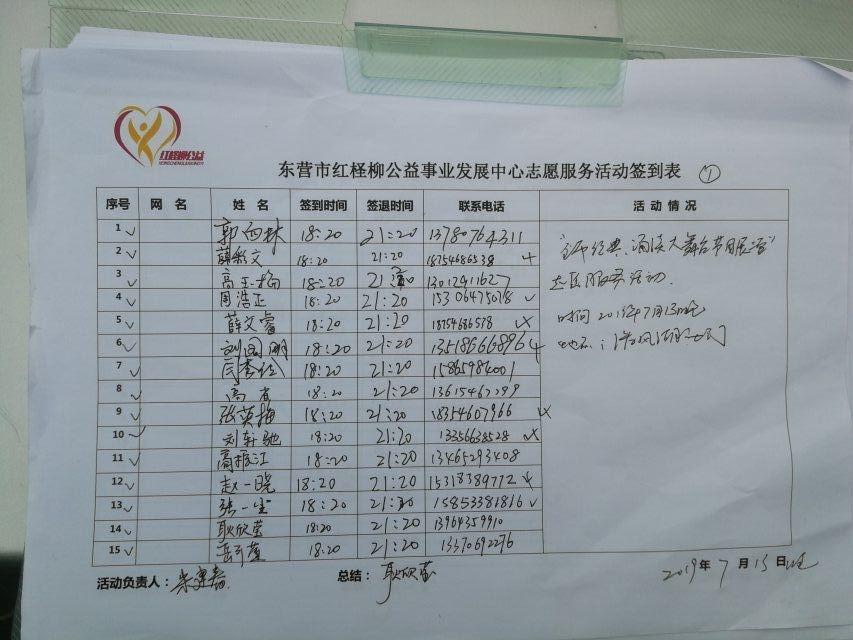 红柽柳公益
东营市红柽柳公益事业发展中心志愿服务活动签到表 ①
序号 网 名 姓 名 签到时间 签退时间 联系电话 活动情况
1 郭向林 18:20 21:20 13780764311
2 薛彩文 18:20 21:20 18754686538
3 高玉梅 18:20 21:20 13012911627
4 周浩正 18:20 21:20 15306475078
5 薛文睿 18:20 21:20
6 刘国朋 18:20 21:20 13518666896
7 18:20 21:20 15865986001
8 18:20 21:20
9 张英梅 18:20 21:20 18354607966
10 刘轩驰 18:20 21:20 13356638528
11 高振江 18:20 21:20 13465293408
12 赵一晓 18:20 21:20 15318389712
13 18:20 21:20 15853381816
14 耿欣莹 18:20 21:20 13964359910
15 18:20 21:20 13370692276
经典、诵读大舞台
志愿服务活动.
时间 2019年7月15日晚
活动负责人:
总结: 耿欣莹
2019年 7月 15日晚